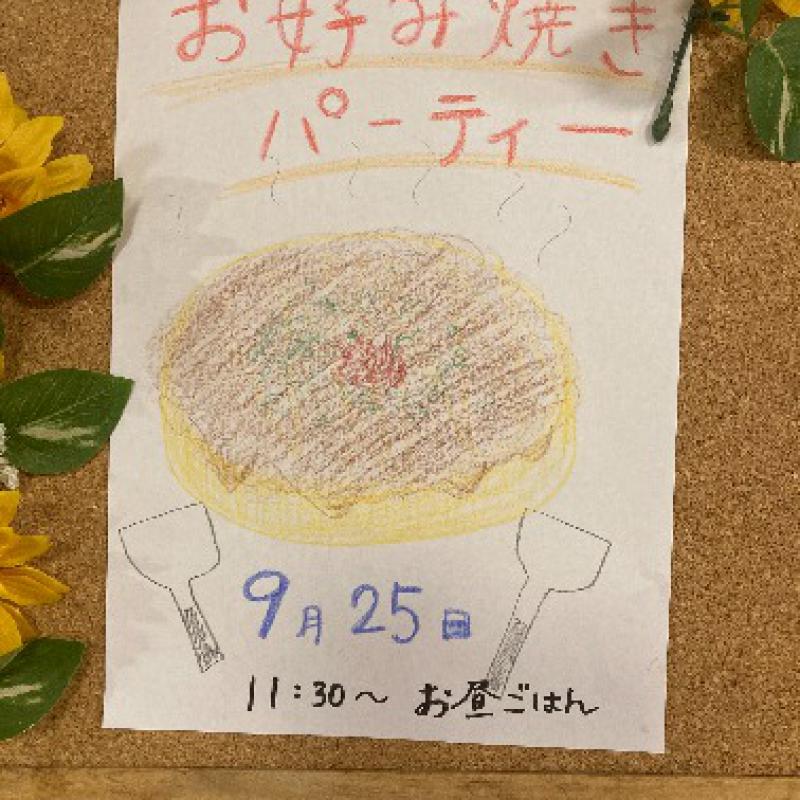 お好み焼き
パーティー
9月25日
11:30～ お昼ごはん